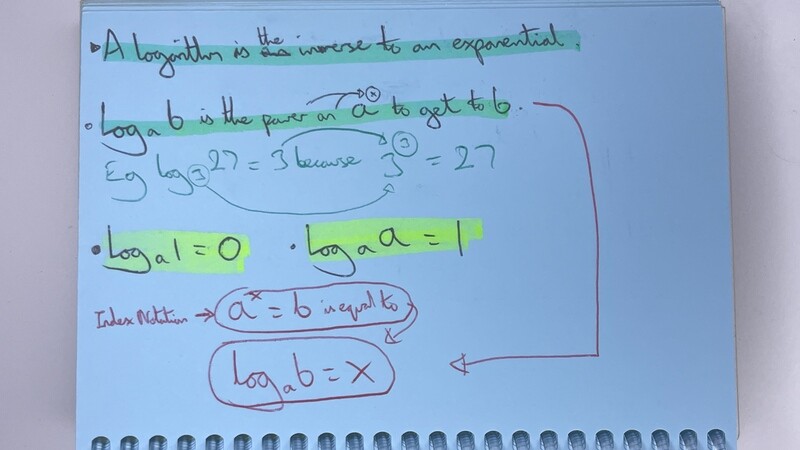 A logarithm is the inverse to an exponential.
Log_a b is the power on a^x to get to b.
Eg log_3 27 = 3 because 3^3 = 27
Log_a 1 = 0
Log_a a = 1
Index Notation → a^x = b is equal to
log_a b = x